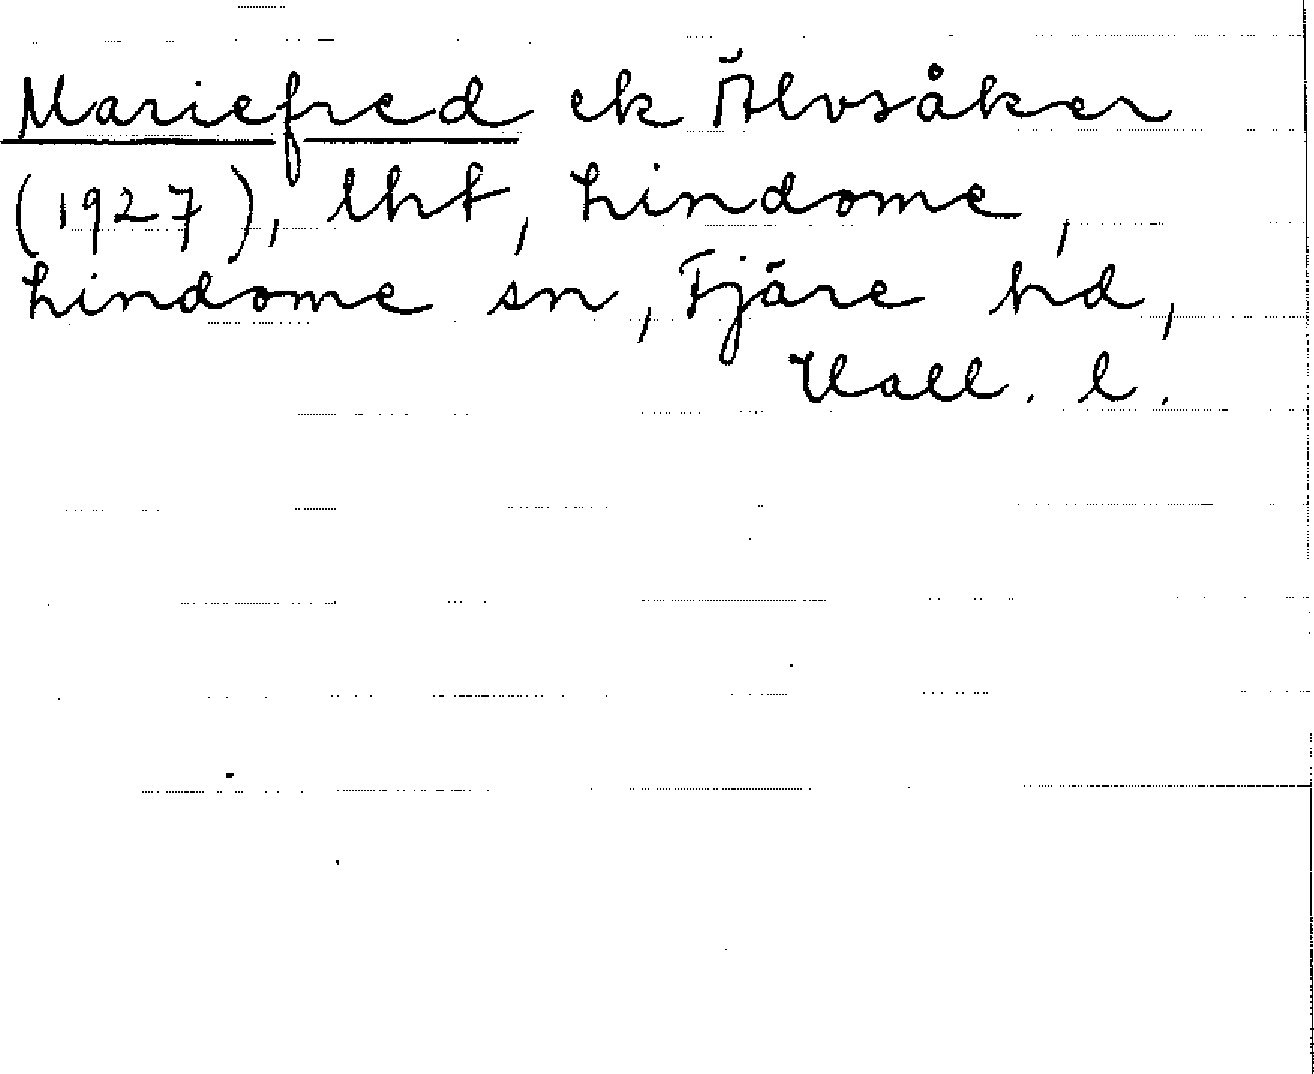 Mariefred ek Älvsåker
(1927), lht, Lindome,
Lindome sn, Fjäre hd,
Hall. l.